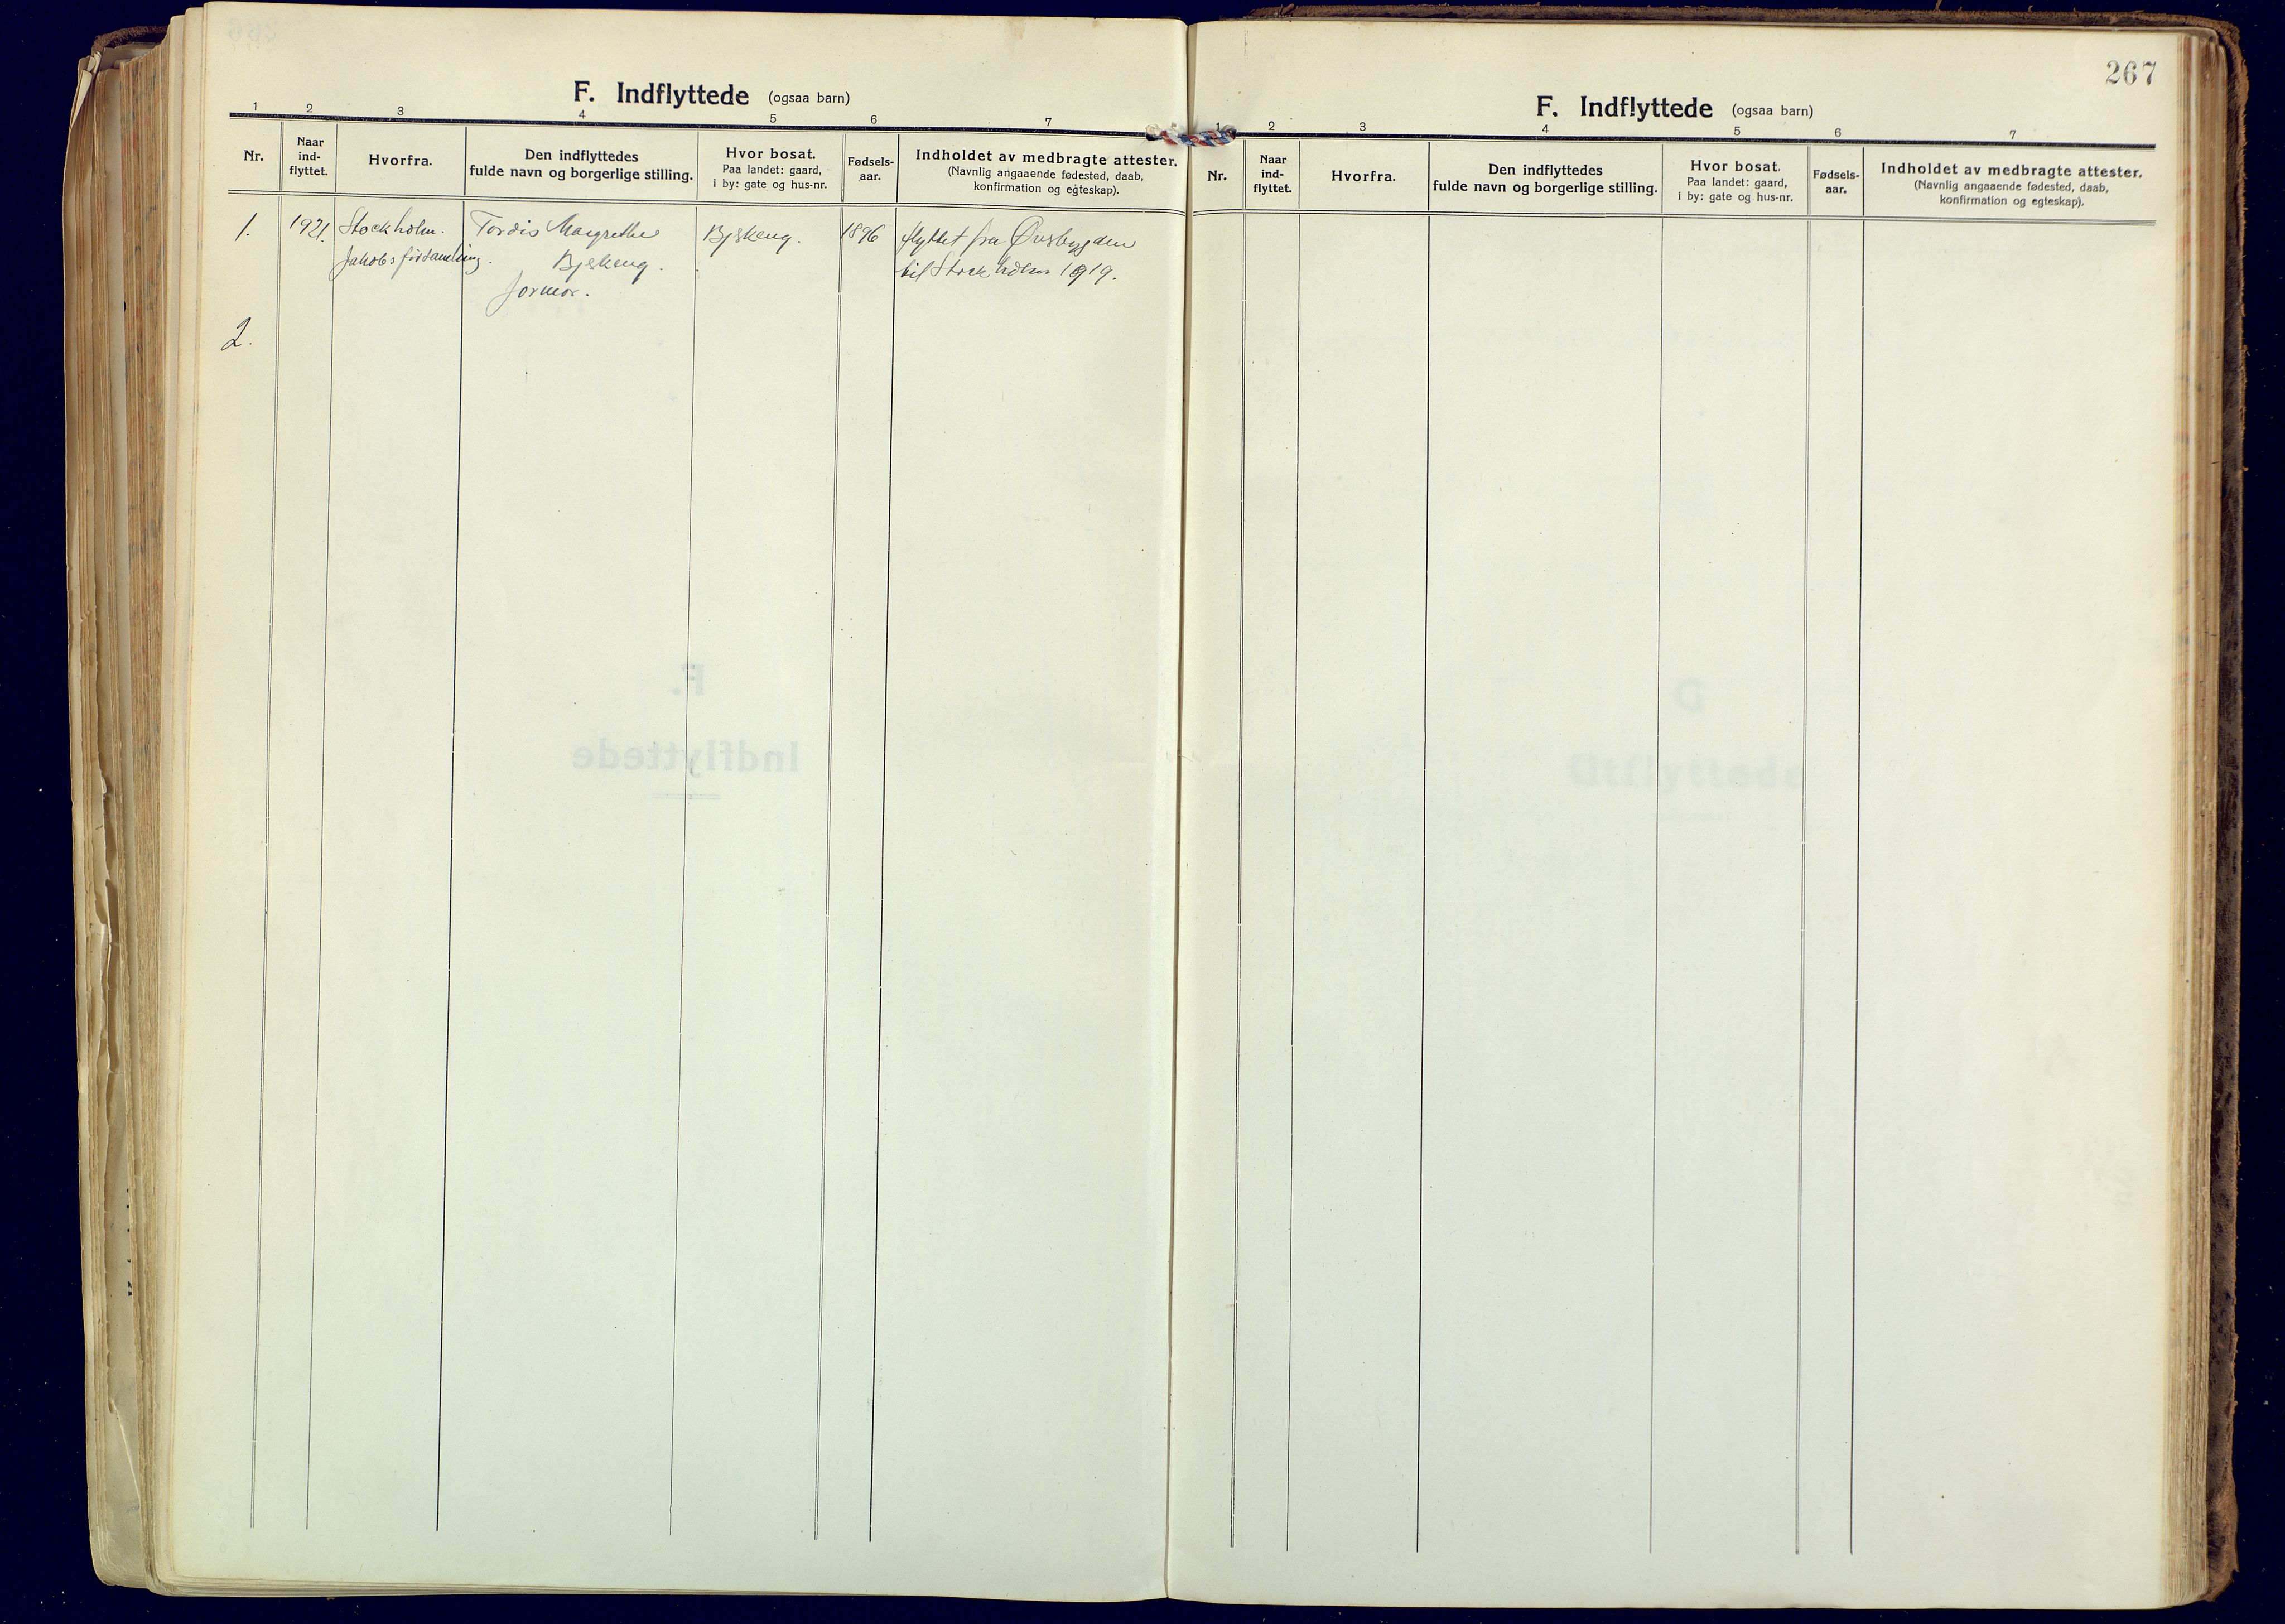 F. Indflyttede (ogsaa barn)
1 2 3 4 5 6 7
Nr.
Naar
ind-
flyttet.
Hvorfra.
Den indflyttedes
fulde navn og borgerlige stilling.
Hvor bosat.
Paa landet: gaard,
i by: gate og hus-nr.
Fødsels-
aar.
Indholdet av medbragte attester.
(Navnlig angaaende fødested, daab,
konfirmation og egteskap).
1. 1921. Stockholm. Tordis Margrethe Bjskeng. 1896 flyttet fra Øvrebygden
Jakobs församling. Bjskeng. til Stockholm 1919.
Jormor.
2.
267
F. Indflyttede (ogsaa barn)
1 2 3 4 5 6 7
Nr.
Naar
ind-
flyttet.
Hvorfra.
Den indflyttedes
fulde navn og borgerlige stilling.
Hvor bosat.
Paa landet: gaard,
i by: gate og hus-nr.
Fødsels-
aar.
Indholdet av medbragte attester.
(Navnlig angaaende fødested, daab,
konfirmation og egteskap).